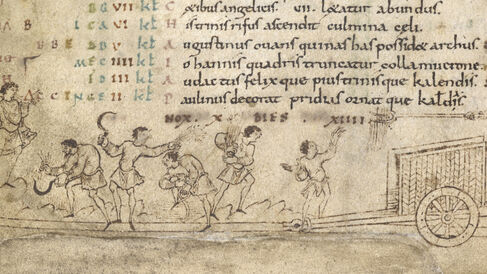 VII kł C oetibus angelicis . VII . abundus.
kł ascendit culmina celi.
kł A ugustinus ouans quinas has possidet archus.
IIII kł I ohannis quadris truncatur colla mucrone.
III kł A udactus felix que pius trinis que kalendis.
II kł P aulinus decorat pridias ornat que kałdis.
NOX . X . DIES . XIIII